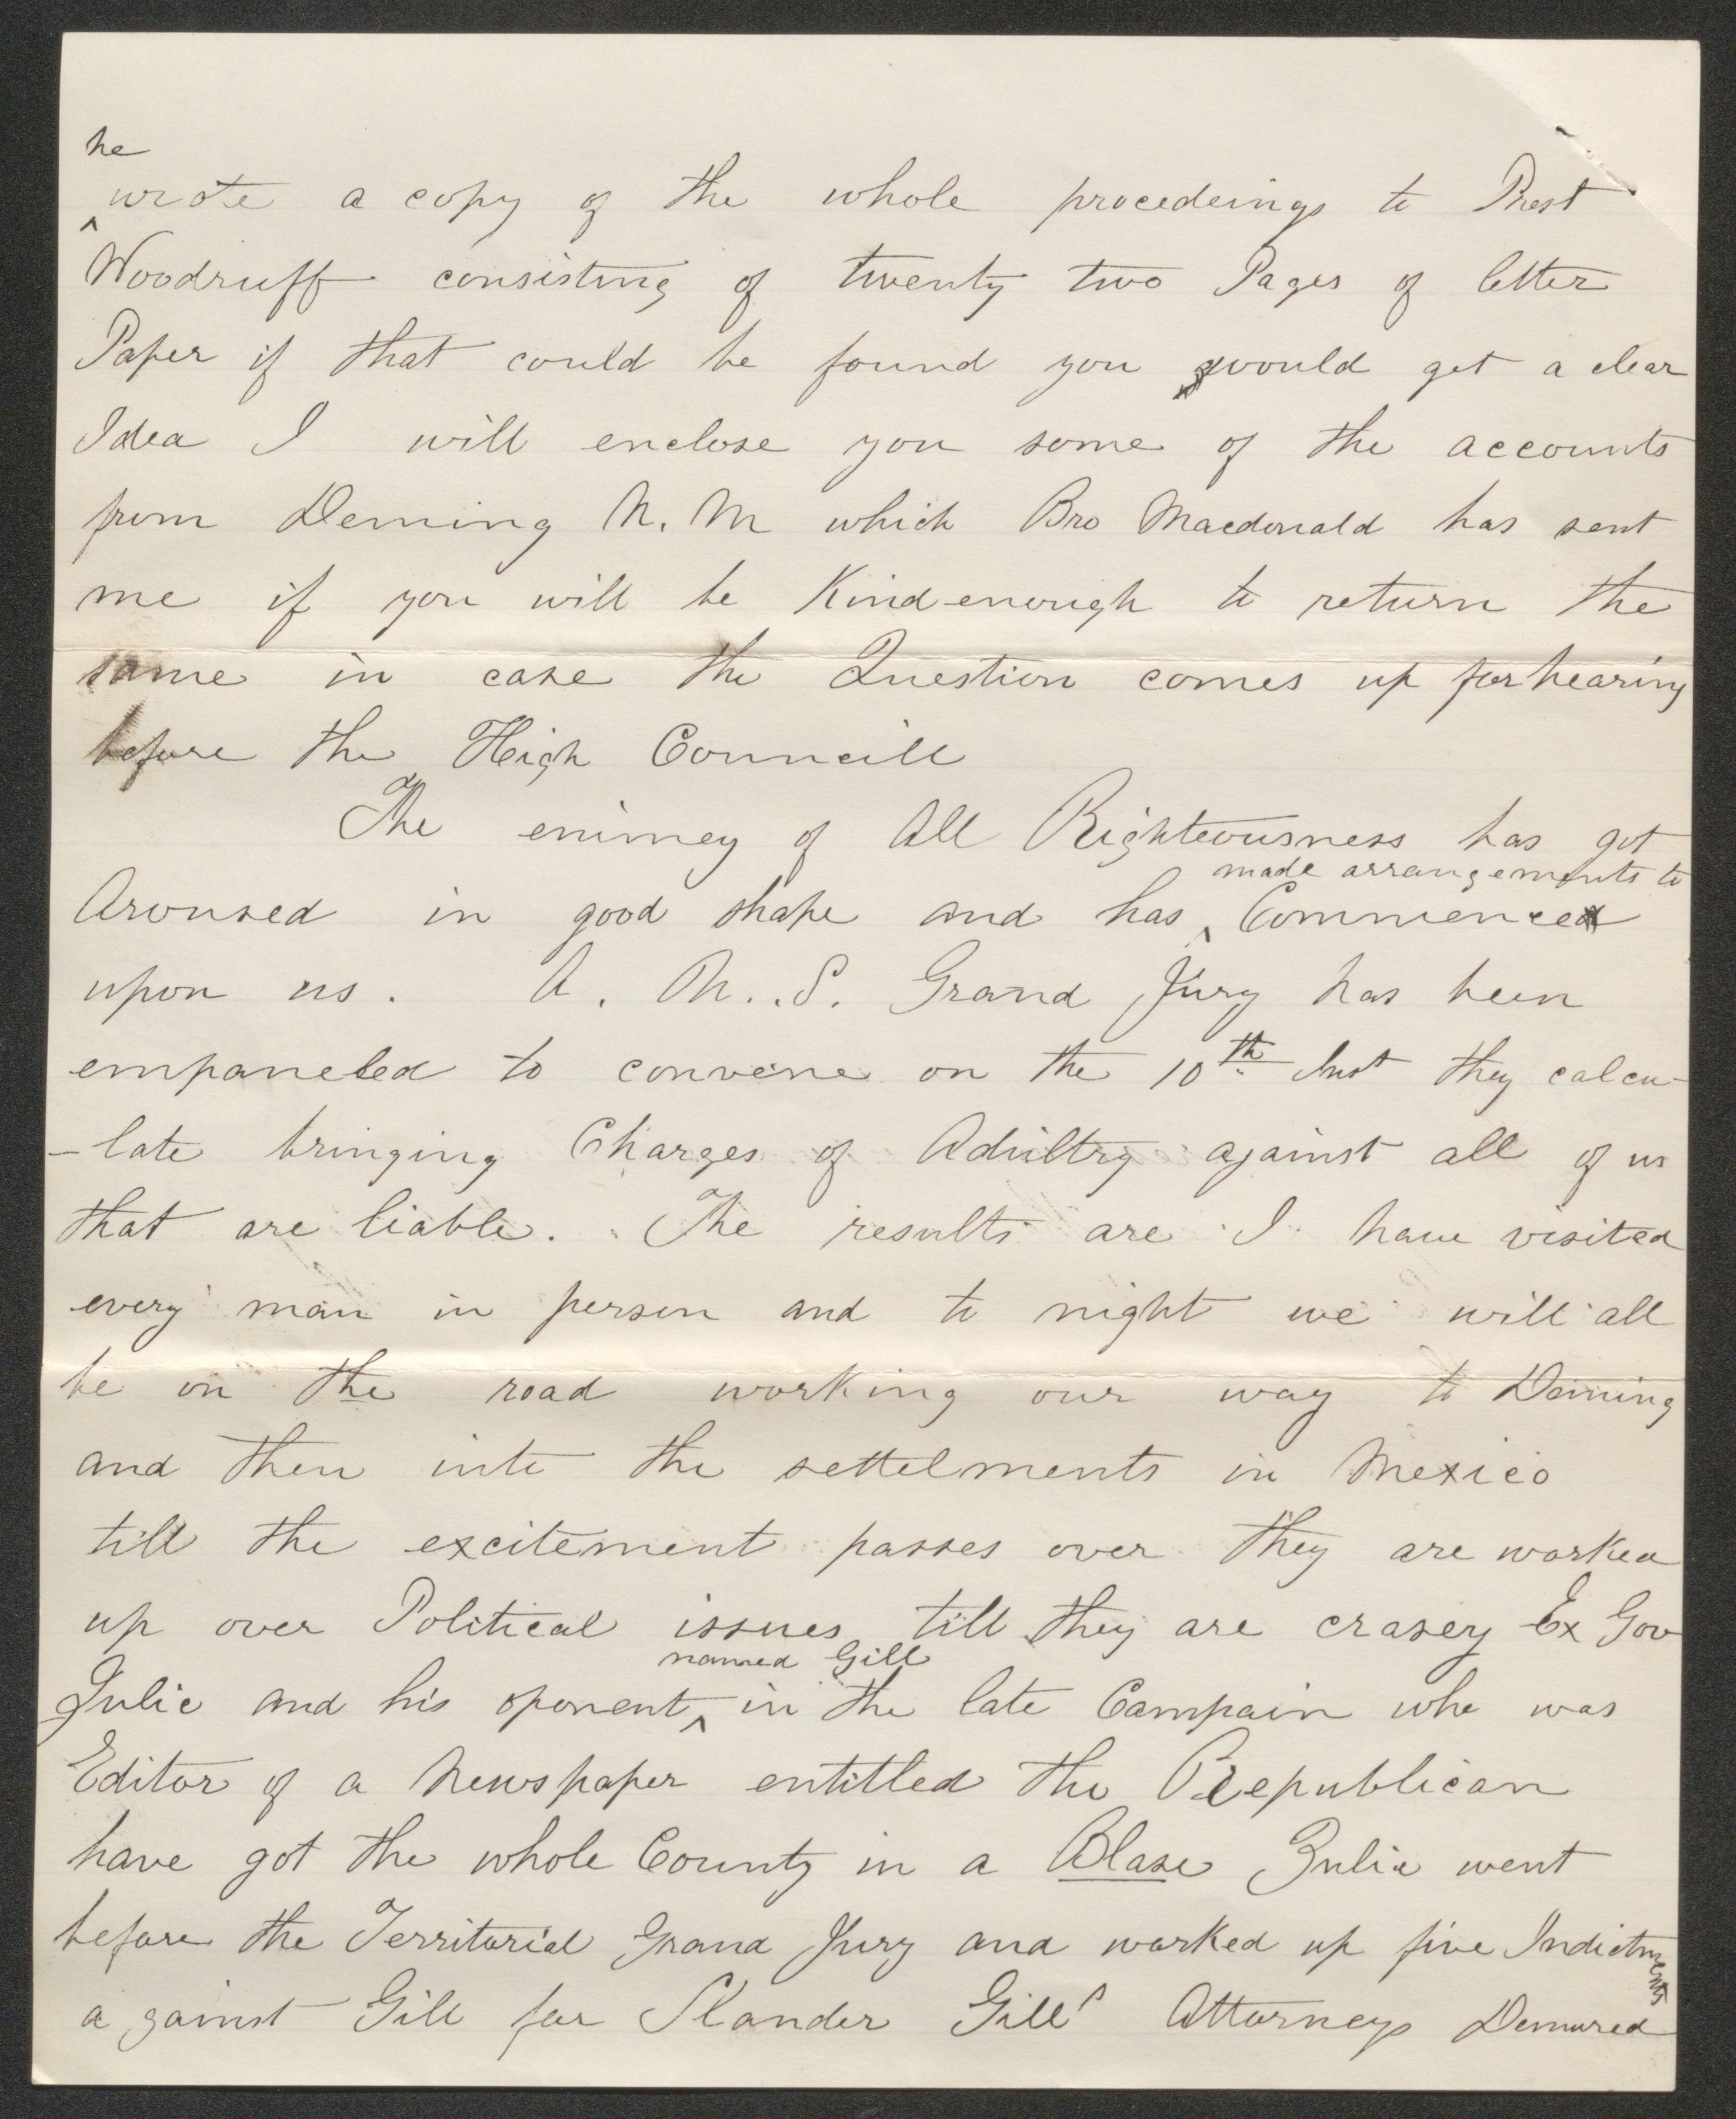 he
wrote a copy of the whole procedeings to Prest
Woodruff consisting of twenty two Pages of letter
Paper if that could be found you would get a clear
Idea I will enclose you some of the accounts
from Deming N. M which Bro Macdonald has sent
me if you will be Kind enough to return the
same in case the Question comes up for hearing
before the High Councill
The enimey of All Righteousness has got
made arrangements to
Arroused in good shape and has Commenced
upon us. A. U. S. Grand Jury has been
empaneled to convene on the 10th Inst they calcu-
-late bringing Charges of Adultry against all of us
that are liable. The results are I have visited
every man in person and to night we will all
be on the road working our way to Deming
and then into the settelments in Mexico
till the excitement passes over they are worked
up over Political issues till they are crasey Ex Gov
named Gill
Zulic and his oponent in the late Campain who was
Editor of a Newspaper entitled the Republican
have got the whole County in a Blase Zulic went
before the Territorial Grand Jury and worked up five Indictments
against Gill for Slander Gills Attorneys Demured